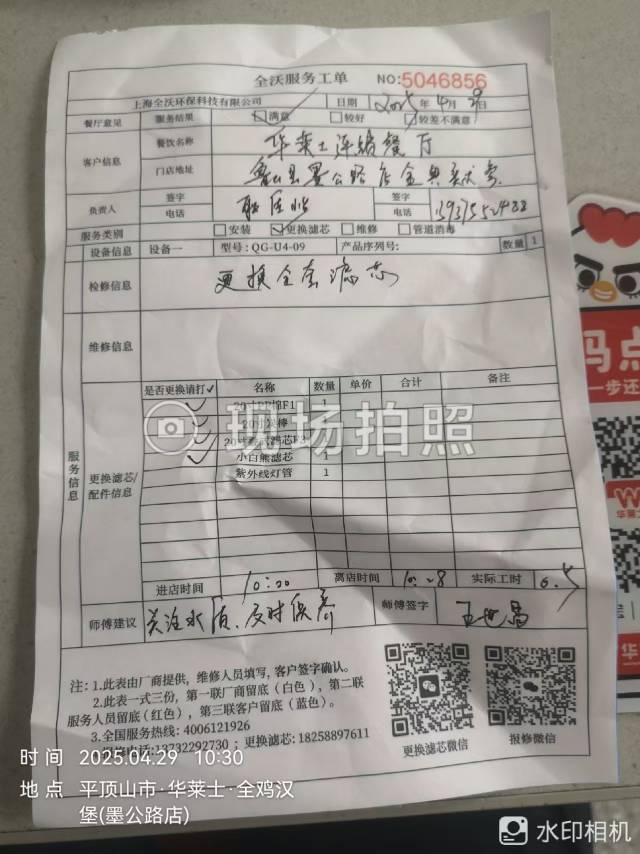 全沃服务工单 NO:5046856
上海全沃环保科技有限公司 日期 2025年4月9日
餐厅意见 服务结果 满意 较好 较差不满意
客户信息 餐饮名称 华莱士连锁餐厅
门店地址 鲁山县墨公路店
负责人 签字 签字
电话 电话
服务类别 安装 更换滤芯 维修 管道消毒
设备信息 设备一 型号:QG-U4-09 产品序列号: 数量 1
检修信息 更换全套滤芯
维修信息
服务信息
更换滤芯/配件信息
是否更换请打✓ 名称 数量 单价 合计 备注
20寸PP棉F1 1
小白熊滤芯 1
紫外线灯管 1
现场拍照
进店时间 10:00 离店时间 10:28 实际工时 0.5
师傅建议 关注水质,及时保养 师傅签字
注:1.此表由厂商提供,维修人员填写,客户签字确认。
2.此表一式三份,第一联厂商留底(白色),第二联
服务人员留底(红色),第三联客户留底(蓝色)。
3.全国服务热线:4006121926
报修电话:13732292730;更换滤芯:18258897611
更换滤芯微信 报修微信
时间 2025.04.29 10:30
地点 平顶山市·华莱士·全鸡汉
堡(墨公路店)
码点
一步还
华莱士
华
水印相机